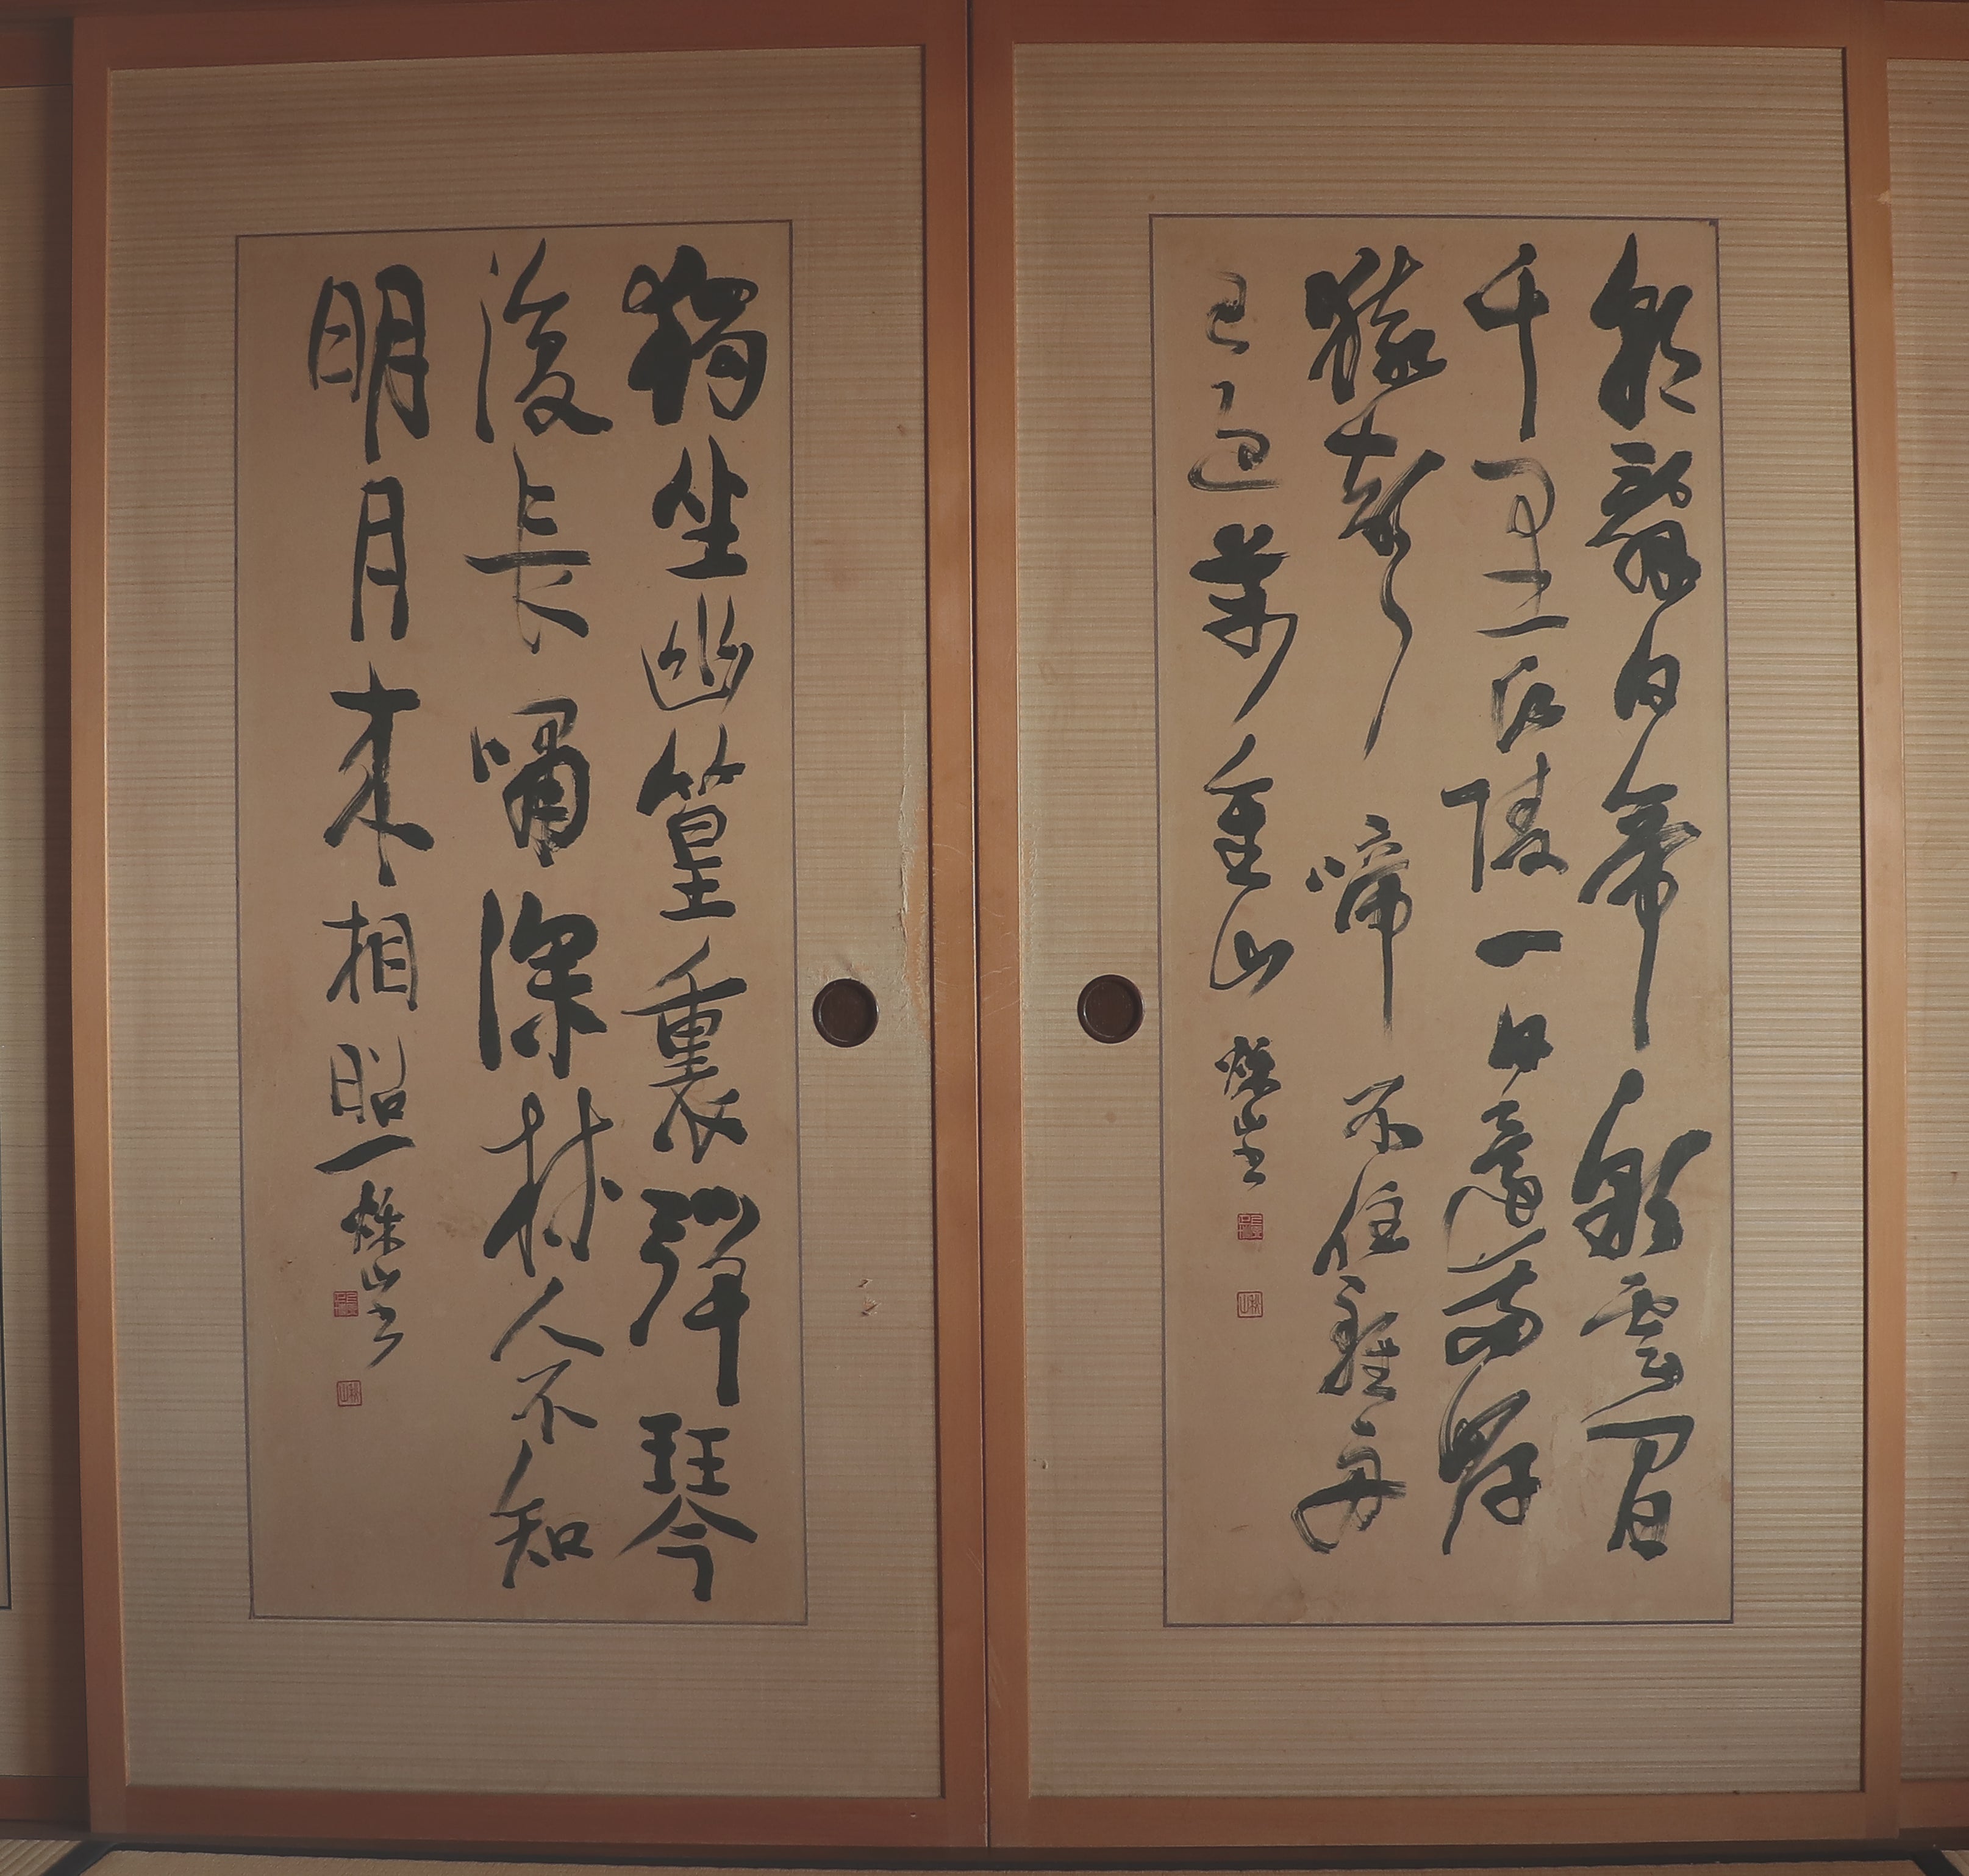 朝辭白帝彩雲間
千里江陵一日還兩岸
猿聲啼不住輕舟
已過萬重山
獨坐幽篁裏彈琴
復長嘯深林人不知
明月来相照